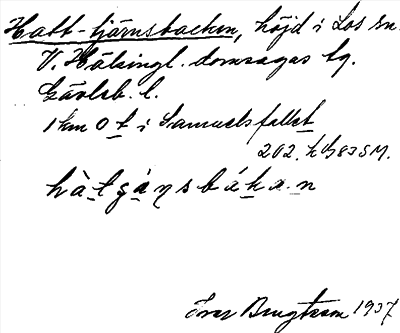 Hatt-tjärnsbacken, höjd i Los sn.
V. Hälsingl. domsagas tg.
Gävleb. l.
1 km O t i Samuelsfallet
202. h B83SM.
hàtgáŋsbákan
Ivar Bengtsson 1937